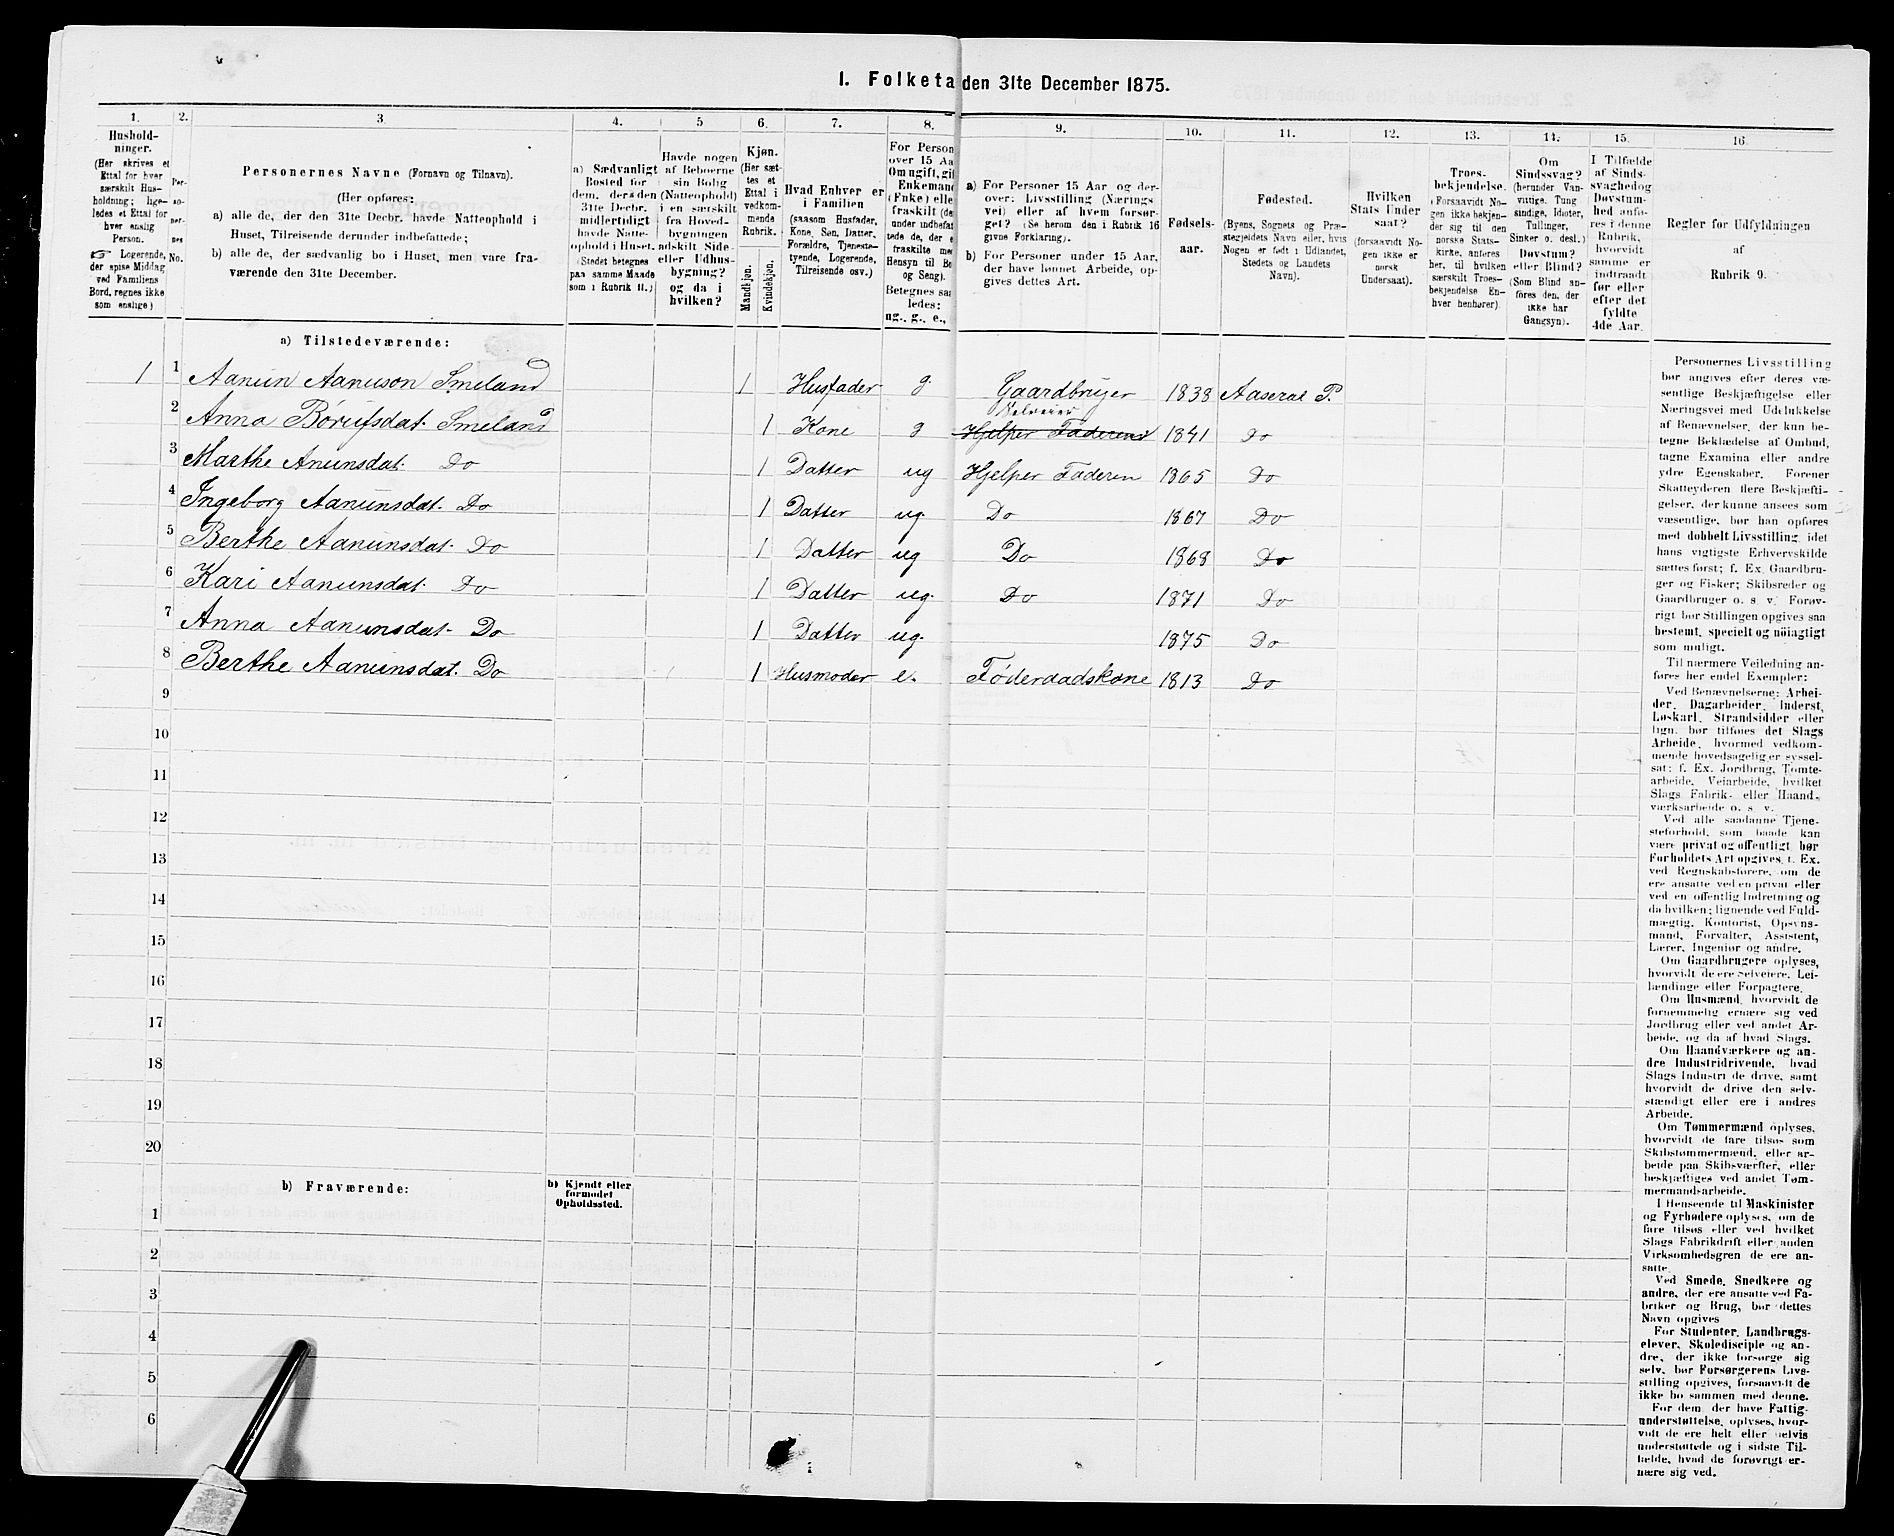 1. Folketa den 31te December 1875.
1. 2. 3. 4. 5 6. 7. 8. 9. 10. 11. 12. 13. 14. 15. 16.
Hushold-
ninger.
(Her skrives et
Ettal for hver
særskilt Hus-
holdning; lige-
ledes et Ettal for
hver enslig
Person.
☞ Logerende,
der spise Middag
ved Familiens
Bord, regnes ikke
som enslige)
Per-
so-
ner-
nes
No.
Personernes Navne (Fornavn og Tilnavn).
(Her opføres:
a) alle de, der den 31te Decbr. havde Natteophold i
Huset, Tilreisende derunder indbefattede;
b) alle de, der sædvanlig bo i Huset, men vare fra-
værende den 31te December.
a) Sædvanligt
Bosted for
dem, der den
31te Decbr.
midlertidigt
havde Natte-
ophold i Huset.
(Stedet betegnes
paa samme Maade
som i Rubrik 11.)
Havde nogen
af Beboerne
sin Bolig
(Natteophold)
i en særskilt
fra Hoved-
bygningen
adskilt Side-
eller Udhus-
bygning?
og da i
hvilken?
Kjøn.
(Her sæt-
tes et
Ettal i
vedkom-
mende
Rubrik.
Mandkjøn.
Kvindekjøn.
Hvad Enhver er
i Familien
(saasom Husfader,
Kone, Søn, Datter,
Forældre, Tjeneste-
tyende, Logerende,
Tilreisende osv.)
For Person
over 15 Aa
Om ugift, gif
Enkemand
(Enke) elle
fraskilt (de
under indbefat
tede de, der e
fraskilte me
Hensyn til Bo
og Seng).
Betegnes saa
ledes:
ug., g., e.,
a) For Personer 15 Aar og der-
over: Livsstilling (Nærings
vei) eller af hvem forsør-
get? (Se herom den i Rubrik 16
givne Forklaring).
b) For Personer under 15 Aar,
der have lønnet Arbeide, op-
gives dettes Art.
Fødsels-
aar.
Fødested.
(Byens, Sognets og Præ-
stegjeldets Navn eller, hvis
Nogen er født i Udlandet,
Stedets og Landets
Navn).
Hvilken
Stats Under
saat?
(forsaavidt No-
gen ikke er
norsk
Undersaat).
Troes-
bekjendelse.
(Forsaavidt No-
gen ikke bekjen-
der sig til den
norske Stats-
kirke, anføres
her, til hvilken
særskilt Troes-
bekjendelse En-
hver henhører).
Om
Sindssvag?
(herunder Van-
vittige, Tung
sindige, Idioter,
Tullinger,
Sinker o. desl.)
Døvstum?
eller Blind?
(Som Blind an-
føres den, der
ikke har
Gangsyn).
I Tilfælde
af Sinds-
svaghed og
Døvstum-
hed anfø-
res i denne
Rubrik,
hvorvidt
samme er
indtraadt
før eller
efter det
fyldte
4de Aar.
Regler for Udfyldningen
af
Rubrik 9.
a) Tilstedeværende:
1 1 Aanun Aanuson Smeland 1 Husfader g. Gaardbruger 1838 Aaseral P.
Selveier
2 Anna Børuisdat. Smeland 1 Kone g Hjelper Faderen 1841 Do
3 Marthe Anunsdat. Do 1 Datter ug Hjelper Faderen 1865 Do
4 Ingeborg Aanunsdat. Do 1 Datter ug. Do 1867 Do
5 Berthe Aanunsdat. Do 1 Datter ug Do 1868 Do
6 Kari Aanunsdat. Do 1 Datter ug. Do 1871 Do
7 Anna Aanunsdat. Do 1 Datter ug. 1875 Do
8 Berthe Aanunsdat. Do 1 Husmoder e. Føderaadskone 1813 Do
9
10
11
12
13
14
15
16
17
18
19
20
b) Fraværende:
b) Kjendt eller
formodet
Opholdssted.
1
2
3
4
5
6
Personernes Livsstilling
bør angives efter deres væ-
sentlige Beskjæftigelse eller
Næringsvei med Udelukkelse
af Benævnelser, der kun be-
tegne Beklædelse af Ombud,
tagne Examina eller andre
ydre Egenskaber. Forener
Skatteyderen flere Beskjæfti-
gelser, der kunne ansees som
væsentlige, bør han opføres
med dobbelt Livsstilling, idet
hans vigtigste Erhvervskilde
sættes først; f. Ex. Gaardbru-
ger og Fisker; Skibsreder og
Gaardbruger o. s v. Forøv-
rigt bør Stillingen opgives saa
bestemt, specielt og nøiagtigt
som muligt.
Til nærmere Veiledning an-
føres her endel Exempler:
Ved Benævnelserne: Arbei-
der, Dagarbeider, Inderst,
Løskarl, Strandsidder eller
lign. bør tilføies det Slags
Arbeide, hvormed vedkom-
mende hovedsagelig er syssel-
sat; f. Ex. Jordbrug, Tomte-
arbeide, Veiarbeide, hvilket
Slags Fabrik- eller Haand-
værksarbeide o. s. v.
Ved alle saadanne Tjene-
steforhold, som baade kan
være privat og offentligt, bør
Forholdets Art opgives, t. Ex.
ved Regnskabsførere, om de
ere ansatte ved en privat eller
ved en offentlig Indretning og
da hvilken; lignende ved Fuld-
mægtig, Kontorist, Opsyns-
mand, Forvalter, Assistent,
Lærer, Ingeniør og andre.
Om Gaardbrugere oplyses,
hvorvidt de ere Selveiere, Lei-
lændinge eller Forpagtere.
Om Husmænd, hvorvidt de
fornemmelig ernære sig ved
Jordbrug eller ved andet Ar-
beide, og da af hvad Slags.
Om Haandværkere og an-
dre Industridrivende, hvad
Slags Industri de drive, samt
hvorvidt de drive den selv-
stændigt eller ere i andres
Arbeide.
Om Tømmermænd oplyses,
hvorvidt de fare tilsøs som
Skibstømmermænd, eller ar-
beide paa Skibsværfter, eller
beskjæftiges ved andet Tøm-
mermandsarbeide.
I Henseende til Maskinister
og Fyrbødere oplyses, om de
fare tilsøs eller ved hvilket
Slags Fabrikdrift eller anden
Virksomhedsgren de ere an-
satte.
Ved Smede, Snedkere og
andre, der ere ansatte ved Fa-
briker og Brug, bør dettes
Navn opgives
For Studenter, Landbrugs-
elever, Skoledisciple og an-
dre, der ikke forsørge sig
selv, bør Forsørgerens Livs-
stilling opgives, forsaavidt de
ikke bo sammen med denne.
For dem, der have Fattig-
understøttelse, oplyses, hvor-
vidt de ere helt eller delvis
understøttede og i sidste Til-
fælde, hvad de forøvrigt er-
nære sig ved.